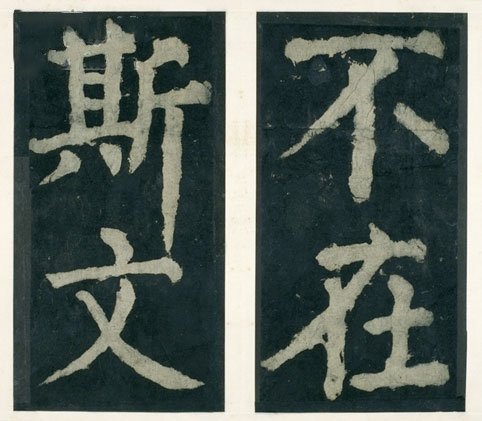 不在
斯文